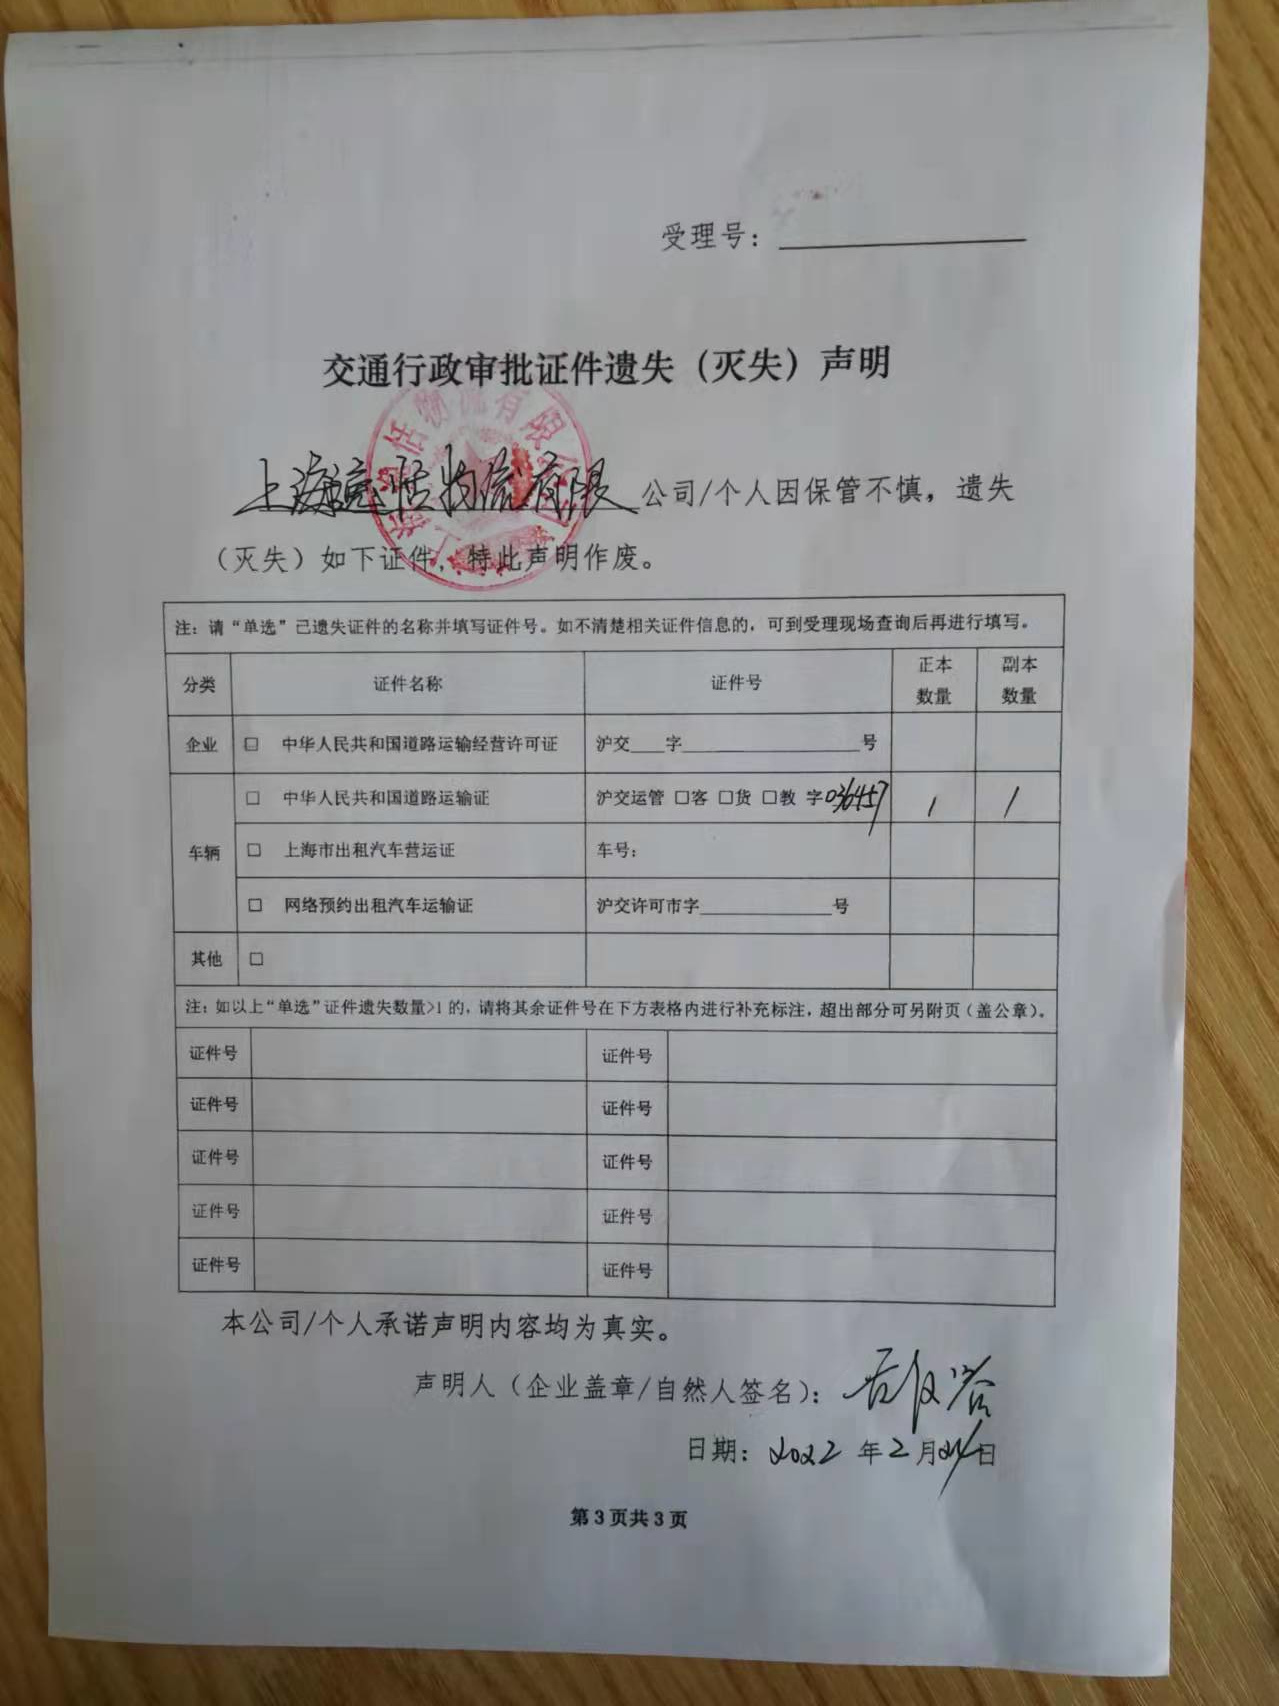 受理号：
交通行政审批证件遗失（灭失）声明
上海 恬物流有限 公司/个人因保管不慎，遗失
（灭失）如下证件，特此声明作废。
恬物流有限
注：请“单选”已遗失证件的名称并填写证件号。如不清楚相关证件信息的，可到受理现场查询后再进行填写。
分类 证件名称 证件号 正本数量 副本数量
企业 □ 中华人民共和国道路运输经营许可证 沪交____字____________号
车辆 □ 中华人民共和国道路运输证 沪交运管 □客 □货 □教 字036457 1 1
□ 上海市出租汽车营运证 车号：
□ 网络预约出租汽车运输证 沪交许可市字__________号
其他 □
注：如以上“单选”证件遗失数量>1 的，请将其余证件号在下方表格内进行补充标注，超出部分可另附页（盖公章）。
证件号 证件号
证件号 证件号
证件号 证件号
证件号 证件号
证件号 证件号
本公司/个人承诺声明内容均为真实。
声明人（企业盖章/自然人签名）：
日期：2022 年 2 月 日
第 3 页共 3 页